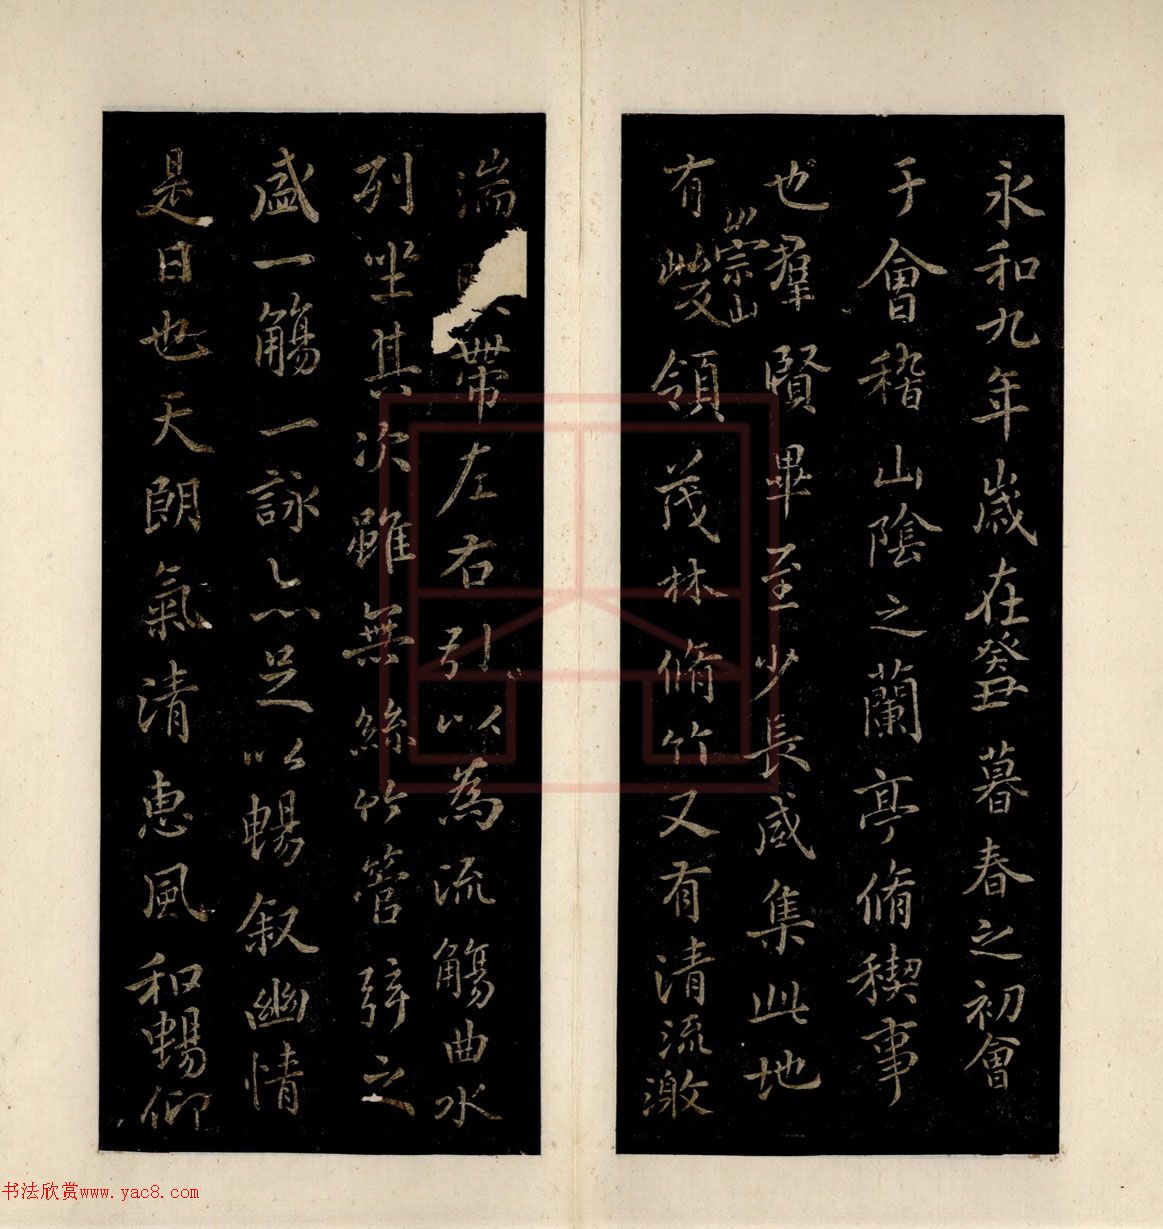 永和九年歲在癸丑暮春之初會
于會稽山陰之蘭亭脩稧事
也羣賢畢至少長咸集此地
有崇山峻領茂林脩竹又有清流激
湍帶左右引以為流觴曲水
列坐其次雖無絲竹管弦之
盛一觴一詠亦足以暢叙幽情
是日也天朗氣清惠風和暢仰
书法欣赏www.yac8.com